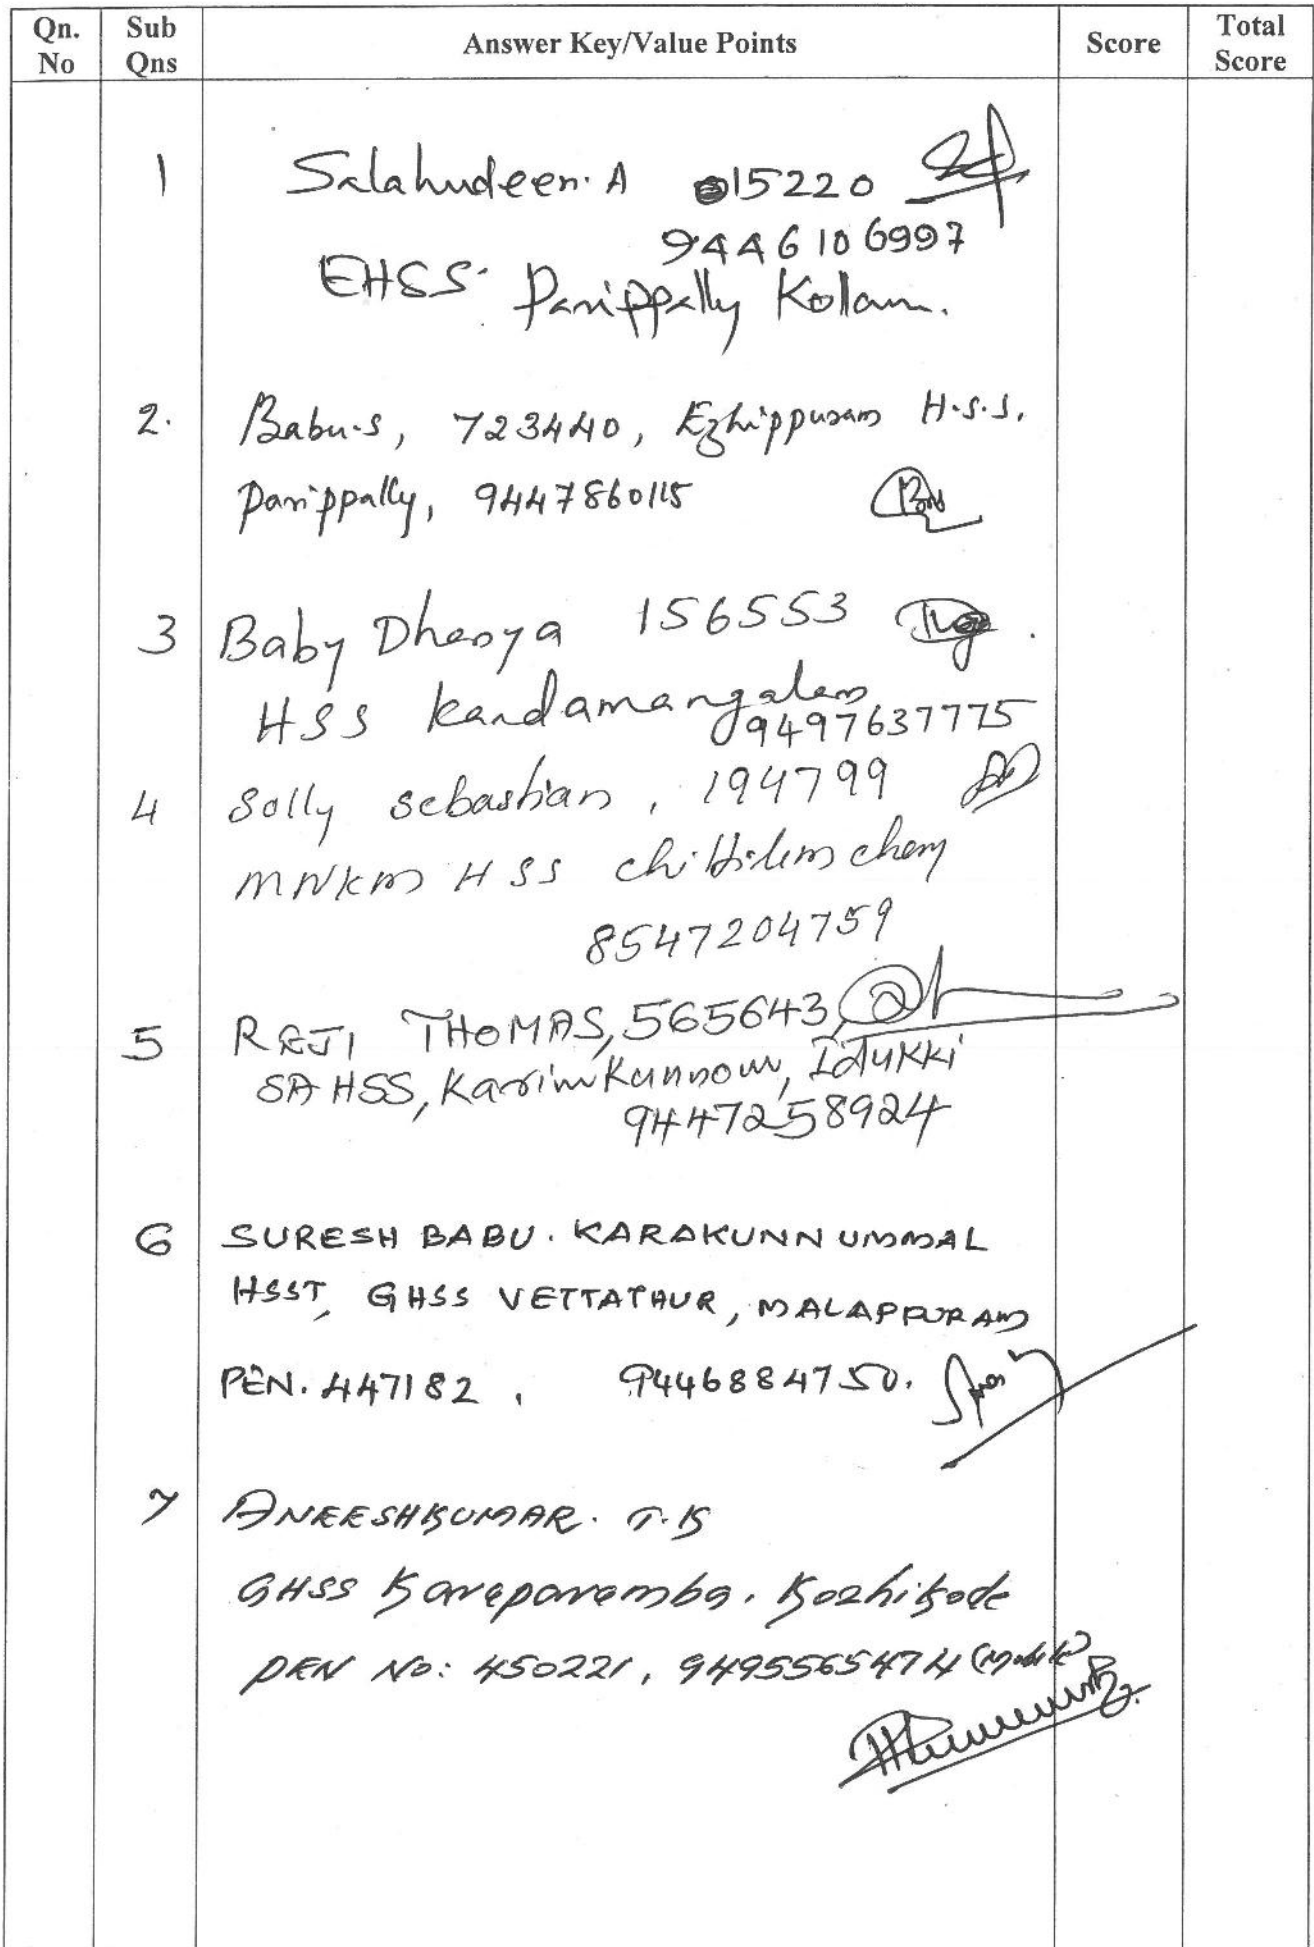 Qn. No
Sub Qns
Answer Key/Value Points
Score
Total Score
1 Salahudeen. A 015220
9446106997
EHSS. Parippally Kollam.
2. Babu.s, 723440, Ezhippuram H.s.s.
Parippally, 9447860115
3 Baby Dhanya 156553
HSS Kandamangalam
9497637775
4 Solly sebastian, 194799
MNKM HSS chittilamchery
8547204759
5 REJI THOMAS, 565643,
SA HSS, Karimkunnom, Idukki
9447258924
6 SURESH BABU. KARAKUNNUMMAL
HSST, GHSS VETTATHUR, MALAPPURAM
PEN. 447182, 9446884750.
7 ANEESHKUMAR. T.K
GHSS Karaparamba, Kozhikode
PEN NO: 450221, 9495565474 (Mobile)